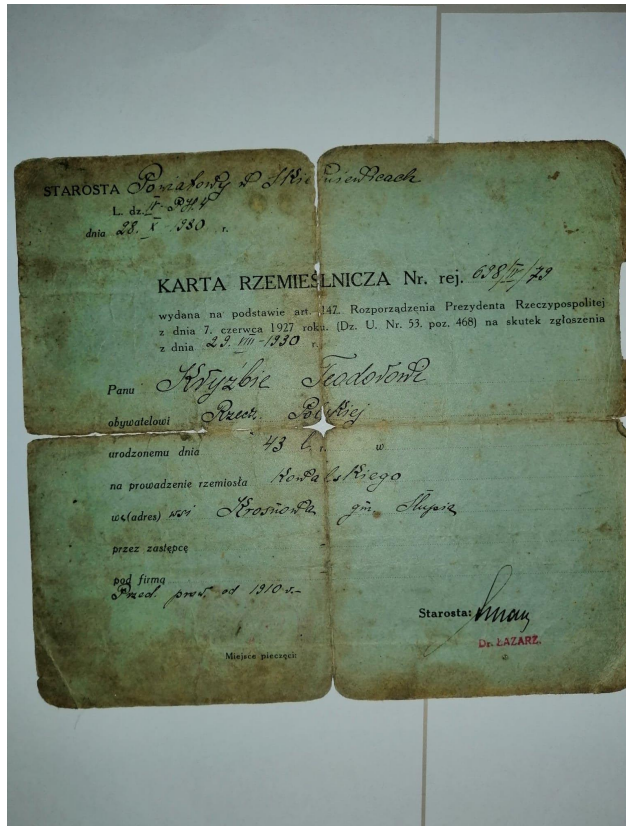 STAROSTA Powiatowy w Skierniewicach
L. dz. IV-PH.4
dnia 28. X 1930 r.
KARTA RZEMIEŚLNICZA Nr. rej. 698/IV/79
wydana na podstawie art. 147. Rozporządzenia Prezydenta Rzeczypospolitej
z dnia 7. czerwca 1927 roku. (Dz. U. Nr. 53. poz. 468) na skutek zgłoszenia
z dnia 29. VIII-1930 r.
Panu Kryzbie Teodorowi
obywatelowi Rzecz. Polskiej
urodzonemu dnia 43 l. r. w
na prowadzenie rzemiosła Kowalskiego
w (adres) wsi Krosnowa gm. Słupia
przez zastępcę
pod firmą
Przed. prow. od 1910 r.-
Starosta:
Dr. ŁAZARZ.
Miejsce pieczęci: